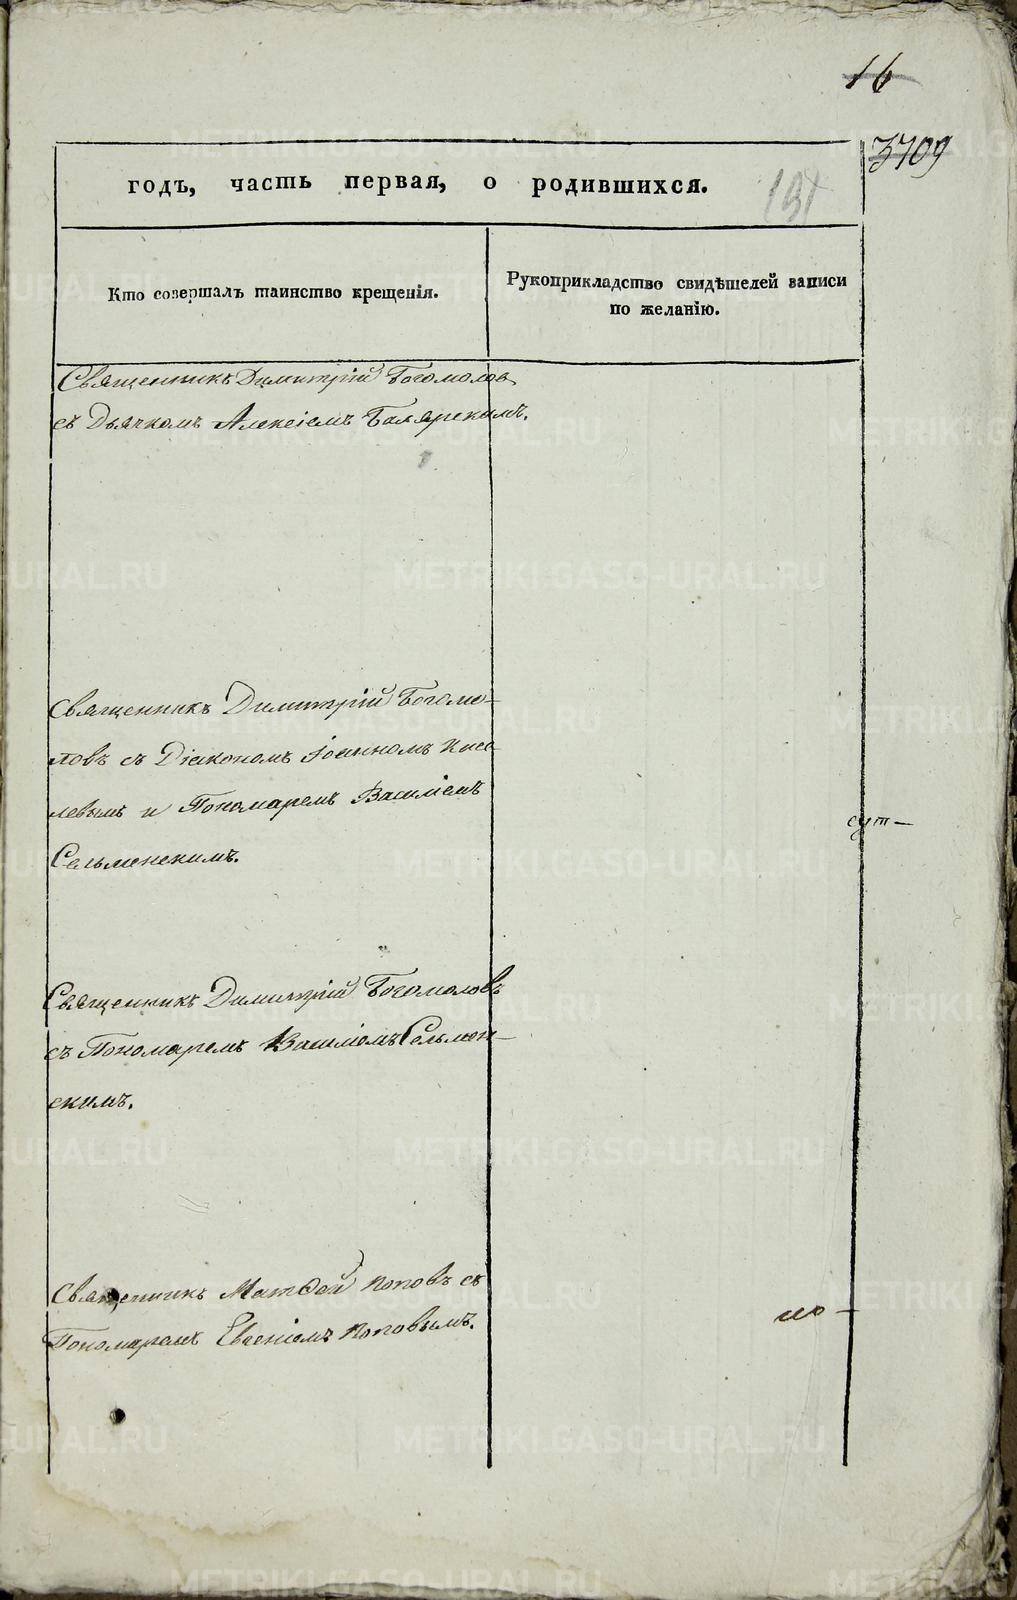 16
3709
191
годъ, часть первая, о родившихся.
Кто совершалъ таинство крещенія.
Рукоприкладство свидѣтелей записи
по желанію.
Священникъ Димитрій Богомоловъ
съ Дьячкомъ Алексіемъ Боярскимъ.
Священникъ Димитрій Богомо-
ловъ съ Діакономъ Іоанномъ Кисе
левымъ и Пономаремъ Василіемъ
Сельменскимъ.
сут-
Священникъ Димитрій Богомоловъ
съ Пономаремъ Василіемъ Сельмен-
скимъ.
Священникъ Матѳей Поповъ съ
Пономаремъ Евсеніемъ Поповымъ.
но-
METRIKI.GASO-URAL.RU